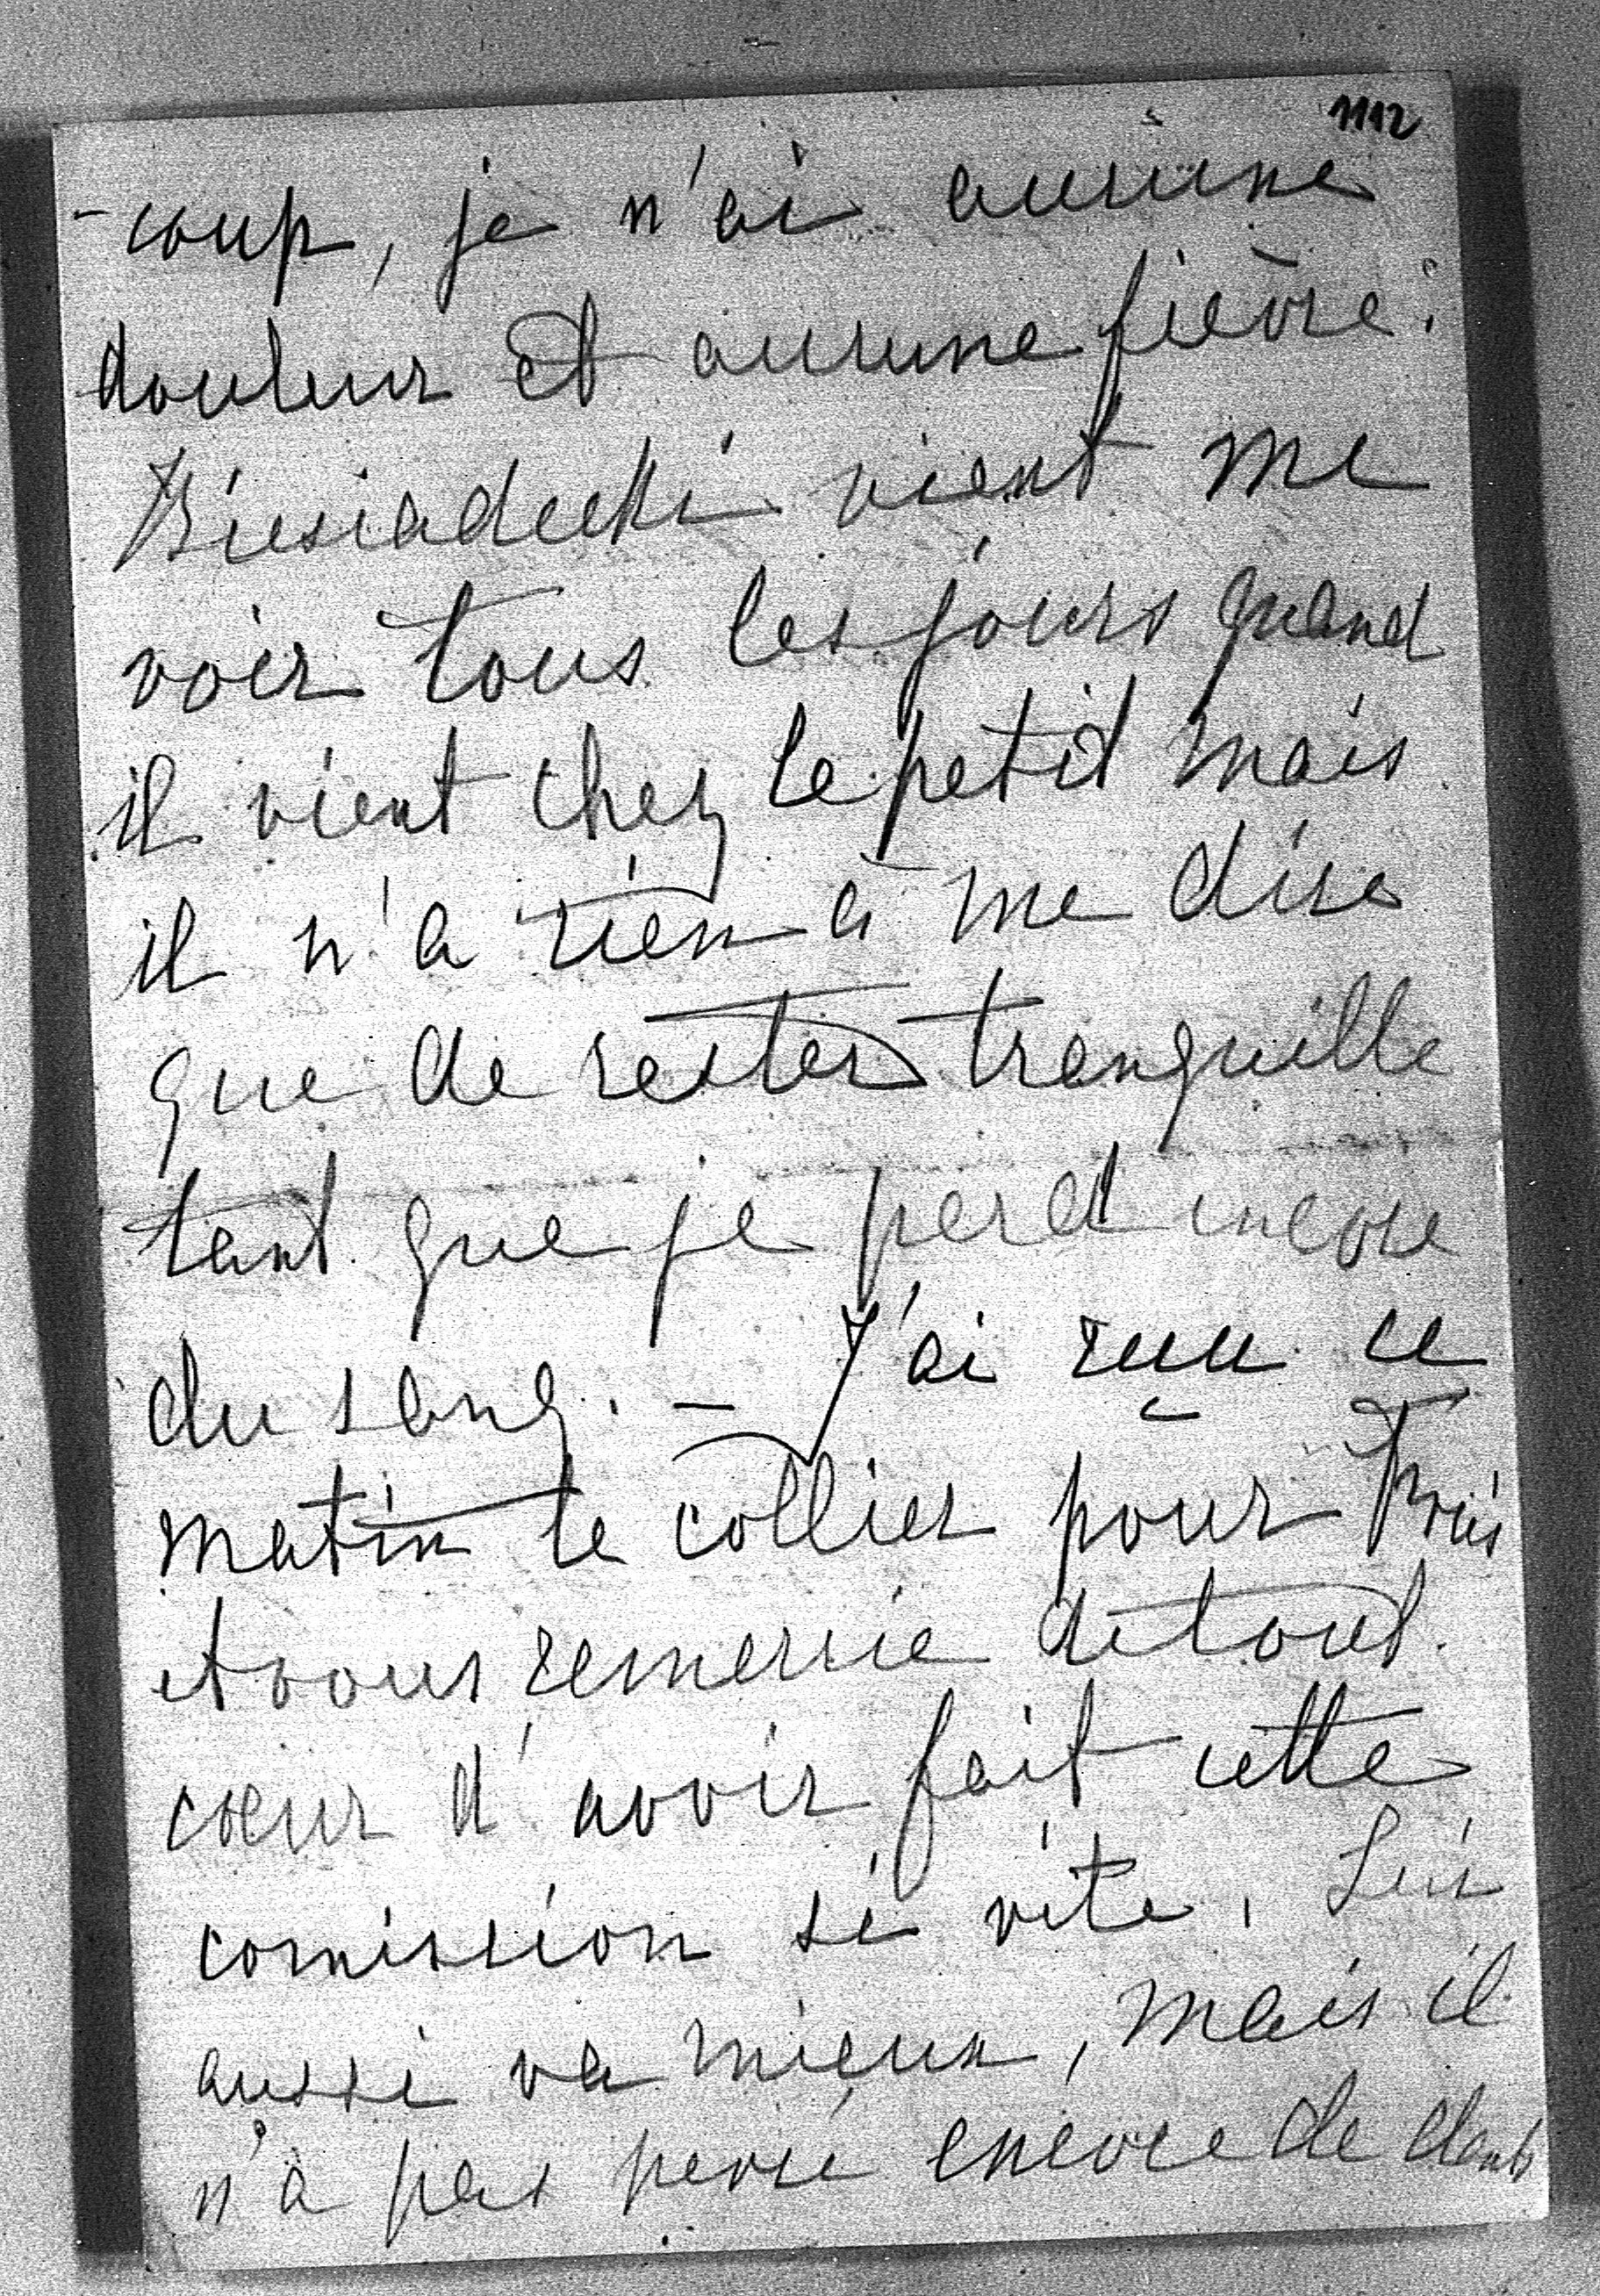 1112
-coup, je n'ai aucune
douleur et aucune fièvre.
Biesiadecki vient me
voir tous les jours quand
il vient chez le petit mais
il n'a rien à me dire
que de rester tranquille
tant que je perd encore
du sang. - J'ai reçu ce
matin le collier pour
et vous remercie de tout
cœur d'avoir fait cette
comission si vite. Lui
aussi va mieux, mais il
n'a pas percé encore de dents